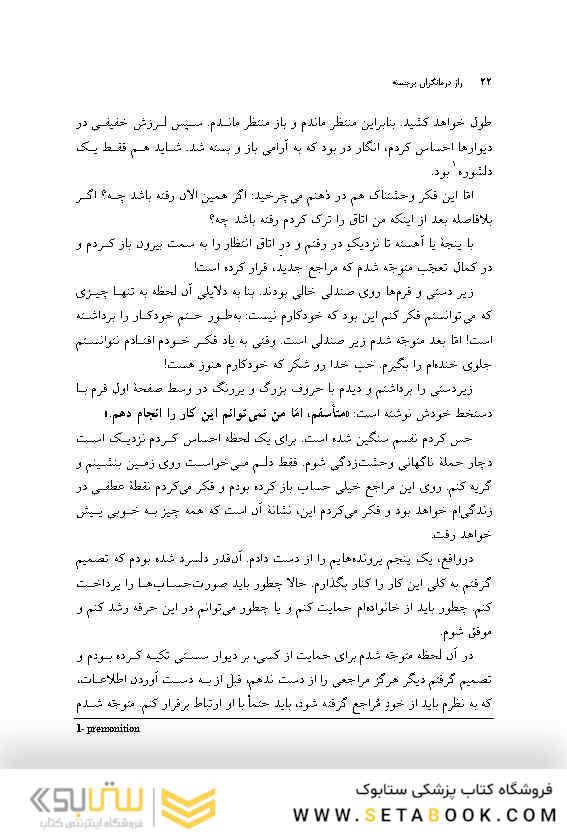 ۲۲ راز درمانگران برجسته
طول خواهد کشید. بنابراین منتظر ماندم و باز منتظر ماندم. سپس لرزش خفیفی در
دیوارها احساس کردم، انگار در بود که به آرامی باز و بسته شد. شاید هم فقط یک
دلشوره۱ بود.
امّا این فکر وحشتناک هم در ذهنم می‌چرخید: اگر همین الان رفته باشد چه؟ اگر
بلافاصله بعد از اینکه من اتاق را ترک کردم رفته باشد چه؟
با پنجهٔ پا آهسته تا نزدیکِ در رفتم و درِ اتاق انتظار را به سمت بیرون باز کردم و
در کمال تعجّب متوجّه شدم که مراجع جدید، فرار کرده است!
زیر دستی و فرم‌ها روی صندلی خالی بودند. بنا به دلایلی آن لحظه به تنها چیزی
که می‌توانستم فکر کنم این بود که خودکارم نیست: به‌طور حتم خودکار را برداشته
است! امّا بعد متوجّه شدم زیر صندلی است. وقتی به یاد فکر خودم افتادم نتوانستم
جلوی خنده‌ام را بگیرم. خب خدا رو شکر که خودکارم هنوز هست!
زیردستی را برداشتم و دیدم با حروف بزرگ و پررنگ در وسط صفحهٔ اول فرم با
دستخط خودش نوشته است: «متأسفم، امّا من نمی‌توانم این کار را انجام دهم.»
حس کردم نفسم سنگین شده است. برای یک لحظه احساس کردم نزدیک است
دچار حملهٔ ناگهانی وحشت‌زدگی شوم. فقط دلم می‌خواست روی زمین بنشینم و
گریه کنم. روی این مراجع خیلی حساب باز کرده بودم و فکر می‌کردم نقطهٔ عطفی در
زندگی‌ام خواهد بود و فکر می‌کردم این، نشانهٔ آن است که همه چیز به خوبی پیش
خواهد رفت.
درواقع، یک پنجم پرونده‌هایم را از دست دادم. آن‌قدر دلسرد شده بودم که تصمیم
گرفتم به کلی این کار را کنار بگذارم. حالا چطور باید صورت‌حساب‌ها را پرداخت
کنم. چطور باید از خانواده‌ام حمایت کنم و یا چطور می‌توانم در این حرفه رشد کنم و
موفق شوم.
در آن لحظه متوجّه شدم برای حمایت از کسی، بر دیوار سستی تکیه کرده بودم و
تصمیم گرفتم دیگر هرگز مراجعی را از دست ندهم، قبل از به دست آوردن اطلاعات،
که به نظرم باید از خودِ مُراجع گرفته شود، باید حتماً با او ارتباط برقرار کنم. متوجّه شدم
1- premonition
فروشگاه کتاب پزشکی ستابوک
WWW.SETABOOK.COM
ستابوک
فروشگاه اینترنتی کتاب